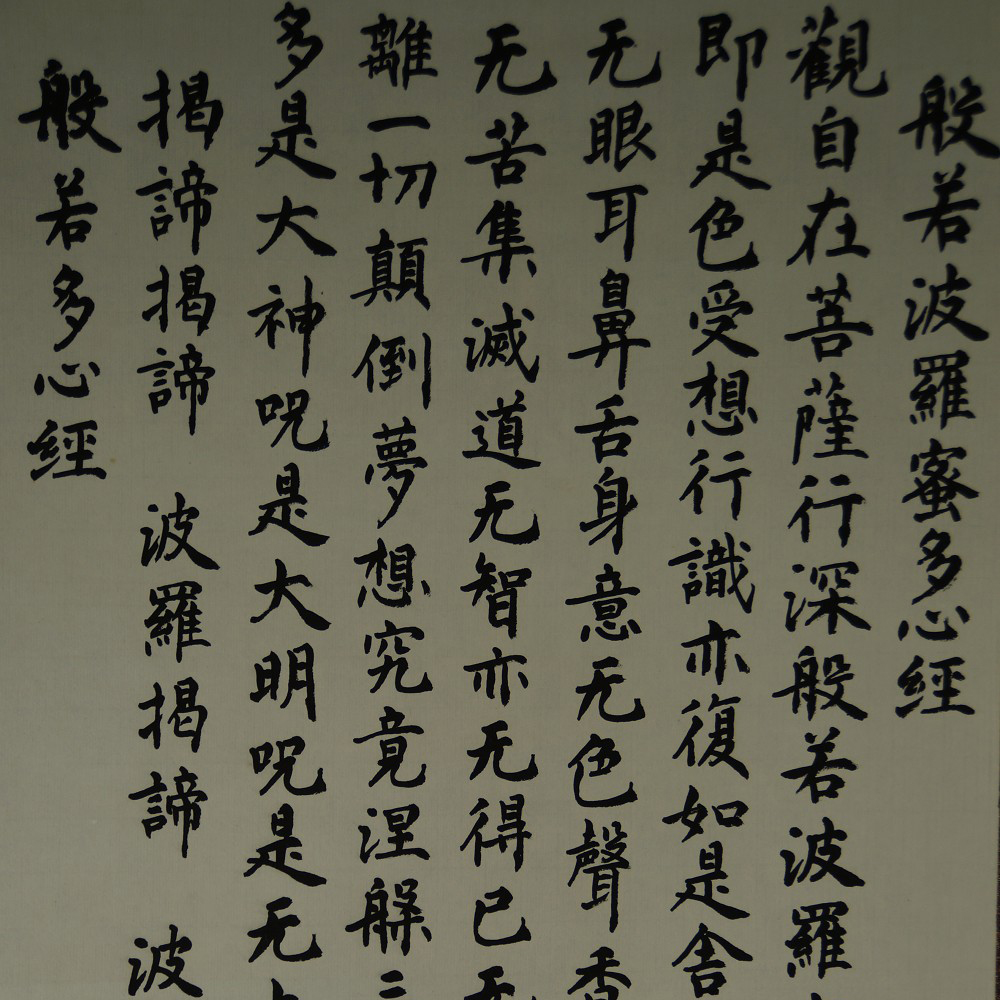 般若波羅蜜多心經
觀自在菩薩行深般若波羅
即是色受想行識亦復如是舍
无眼耳鼻舌身意无色聲香
无苦集滅道无智亦无得已无
離一切顛倒夢想究竟涅槃三
多是大神咒是大明咒是无
揭諦揭諦 波羅揭諦 波
般若多心經